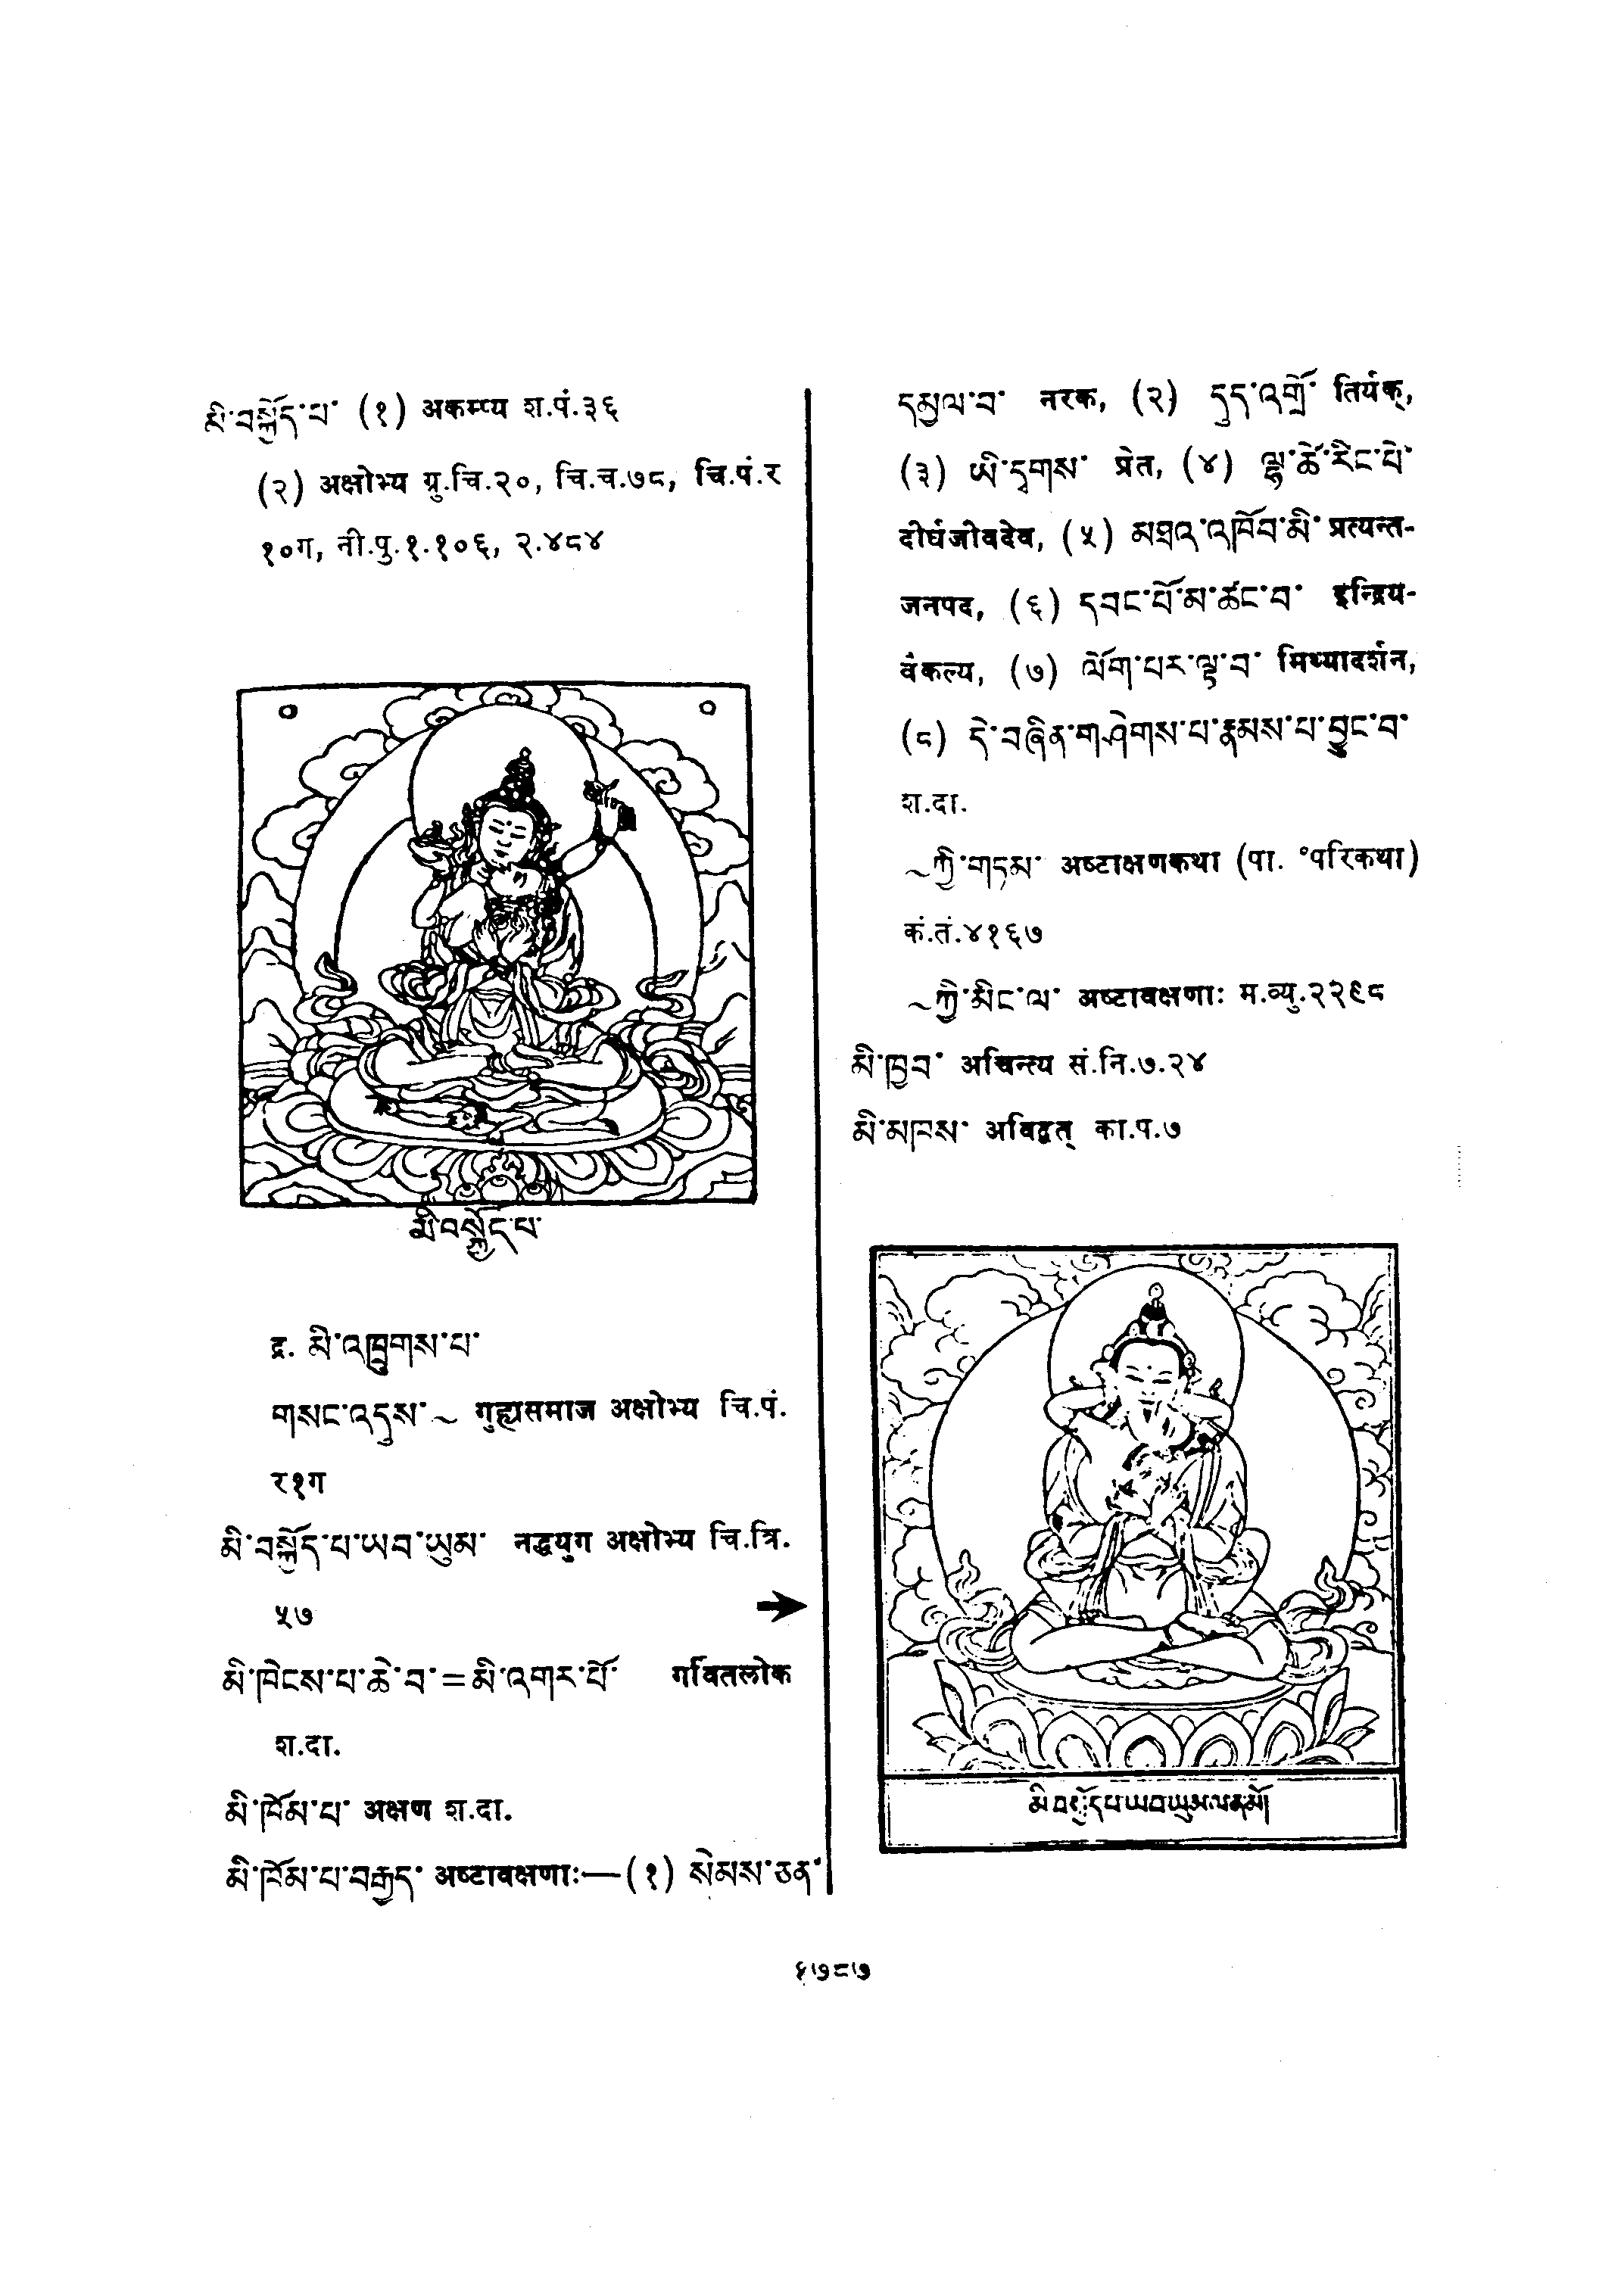 མི་བསྐྱོད་པ་ (१) अकम्प्य श.पं.३६
(२) अक्षोभ्य ग्रु.चि.२०, चि.च.७८, चि.पं.र
१०ग, नी.पु.१.१०६, २.४८४
མི་བསྐྱོད་པ་
द्र. མི་འཁྲུགས་པ་
གསང་འདུས་~ गुह्यसमाज अक्षोभ्य चि.पं.
र१ग
མི་བསྐྱོད་པ་ཡབ་ཡུམ་ नद्धयुग अक्षोभ्य चि.त्रि.
५७
མི་ཁེངས་པ་ཆེ་བ་=མི་འགར་པོ་ गर्वितलोक
श.दा.
མི་ཁོམ་པ་ अक्षण श.दा.
མི་ཁོམ་པ་བརྒྱད་ अष्टावक्षणाः—(१) སེམས་ཅན་
དམྱལ་བ་ नरक, (२) དུད་འགྲོ་ तिर्यक्,
(३) ཡི་དྭགས་ प्रेत, (४) ལྷ་ཚེ་རིང་པོ་
दीर्घजीवदेव, (५) མཐའ་འཁོབ་མི་ प्रत्यन्त-
जनपद, (६) དབང་པོ་མ་ཚང་བ་ इन्द्रिय-
वैकल्य, (७) ལོག་པར་ལྟ་བ་ मिथ्यादर्शन,
(८) དེ་བཞིན་གཤེགས་པ་རྣམས་པ་བྱུང་བ་
श.दा.
~ཀྱི་གཏམ་ अष्टाक्षणकथा (पा. °परिकथा)
कं.तं.४१६७
~ཀྱི་མིང་ལ་ अष्टावक्षणाः म.व्यु.२२९८
མི་ཁྱབ་ अचिन्त्य सं.नि.७.२४
མི་མཁས་ अविद्वत् का.प.७
མི་བསྐྱོད་པ་ཡབ་ཡུམ་ལ་ན་མོ།
१७८७